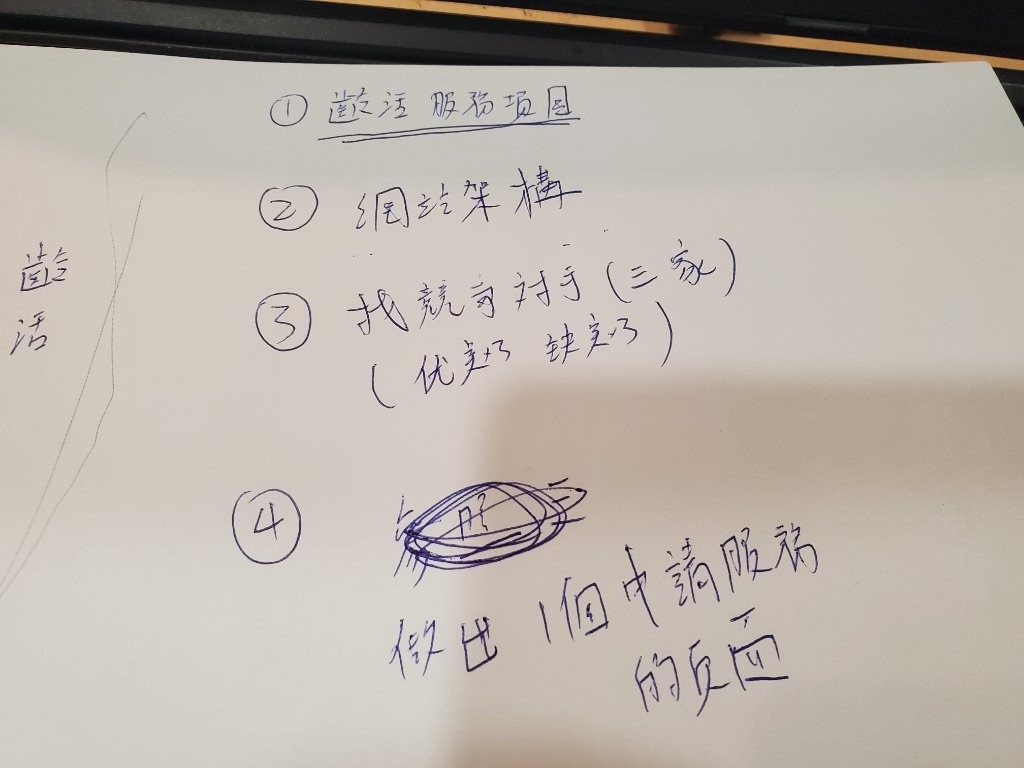 ① 齡活 服務項目
② 網站架構
③ 找競爭对手(三家)
(优勢 缺勢)
齡
活
④
做出 1個申請服務
的页面